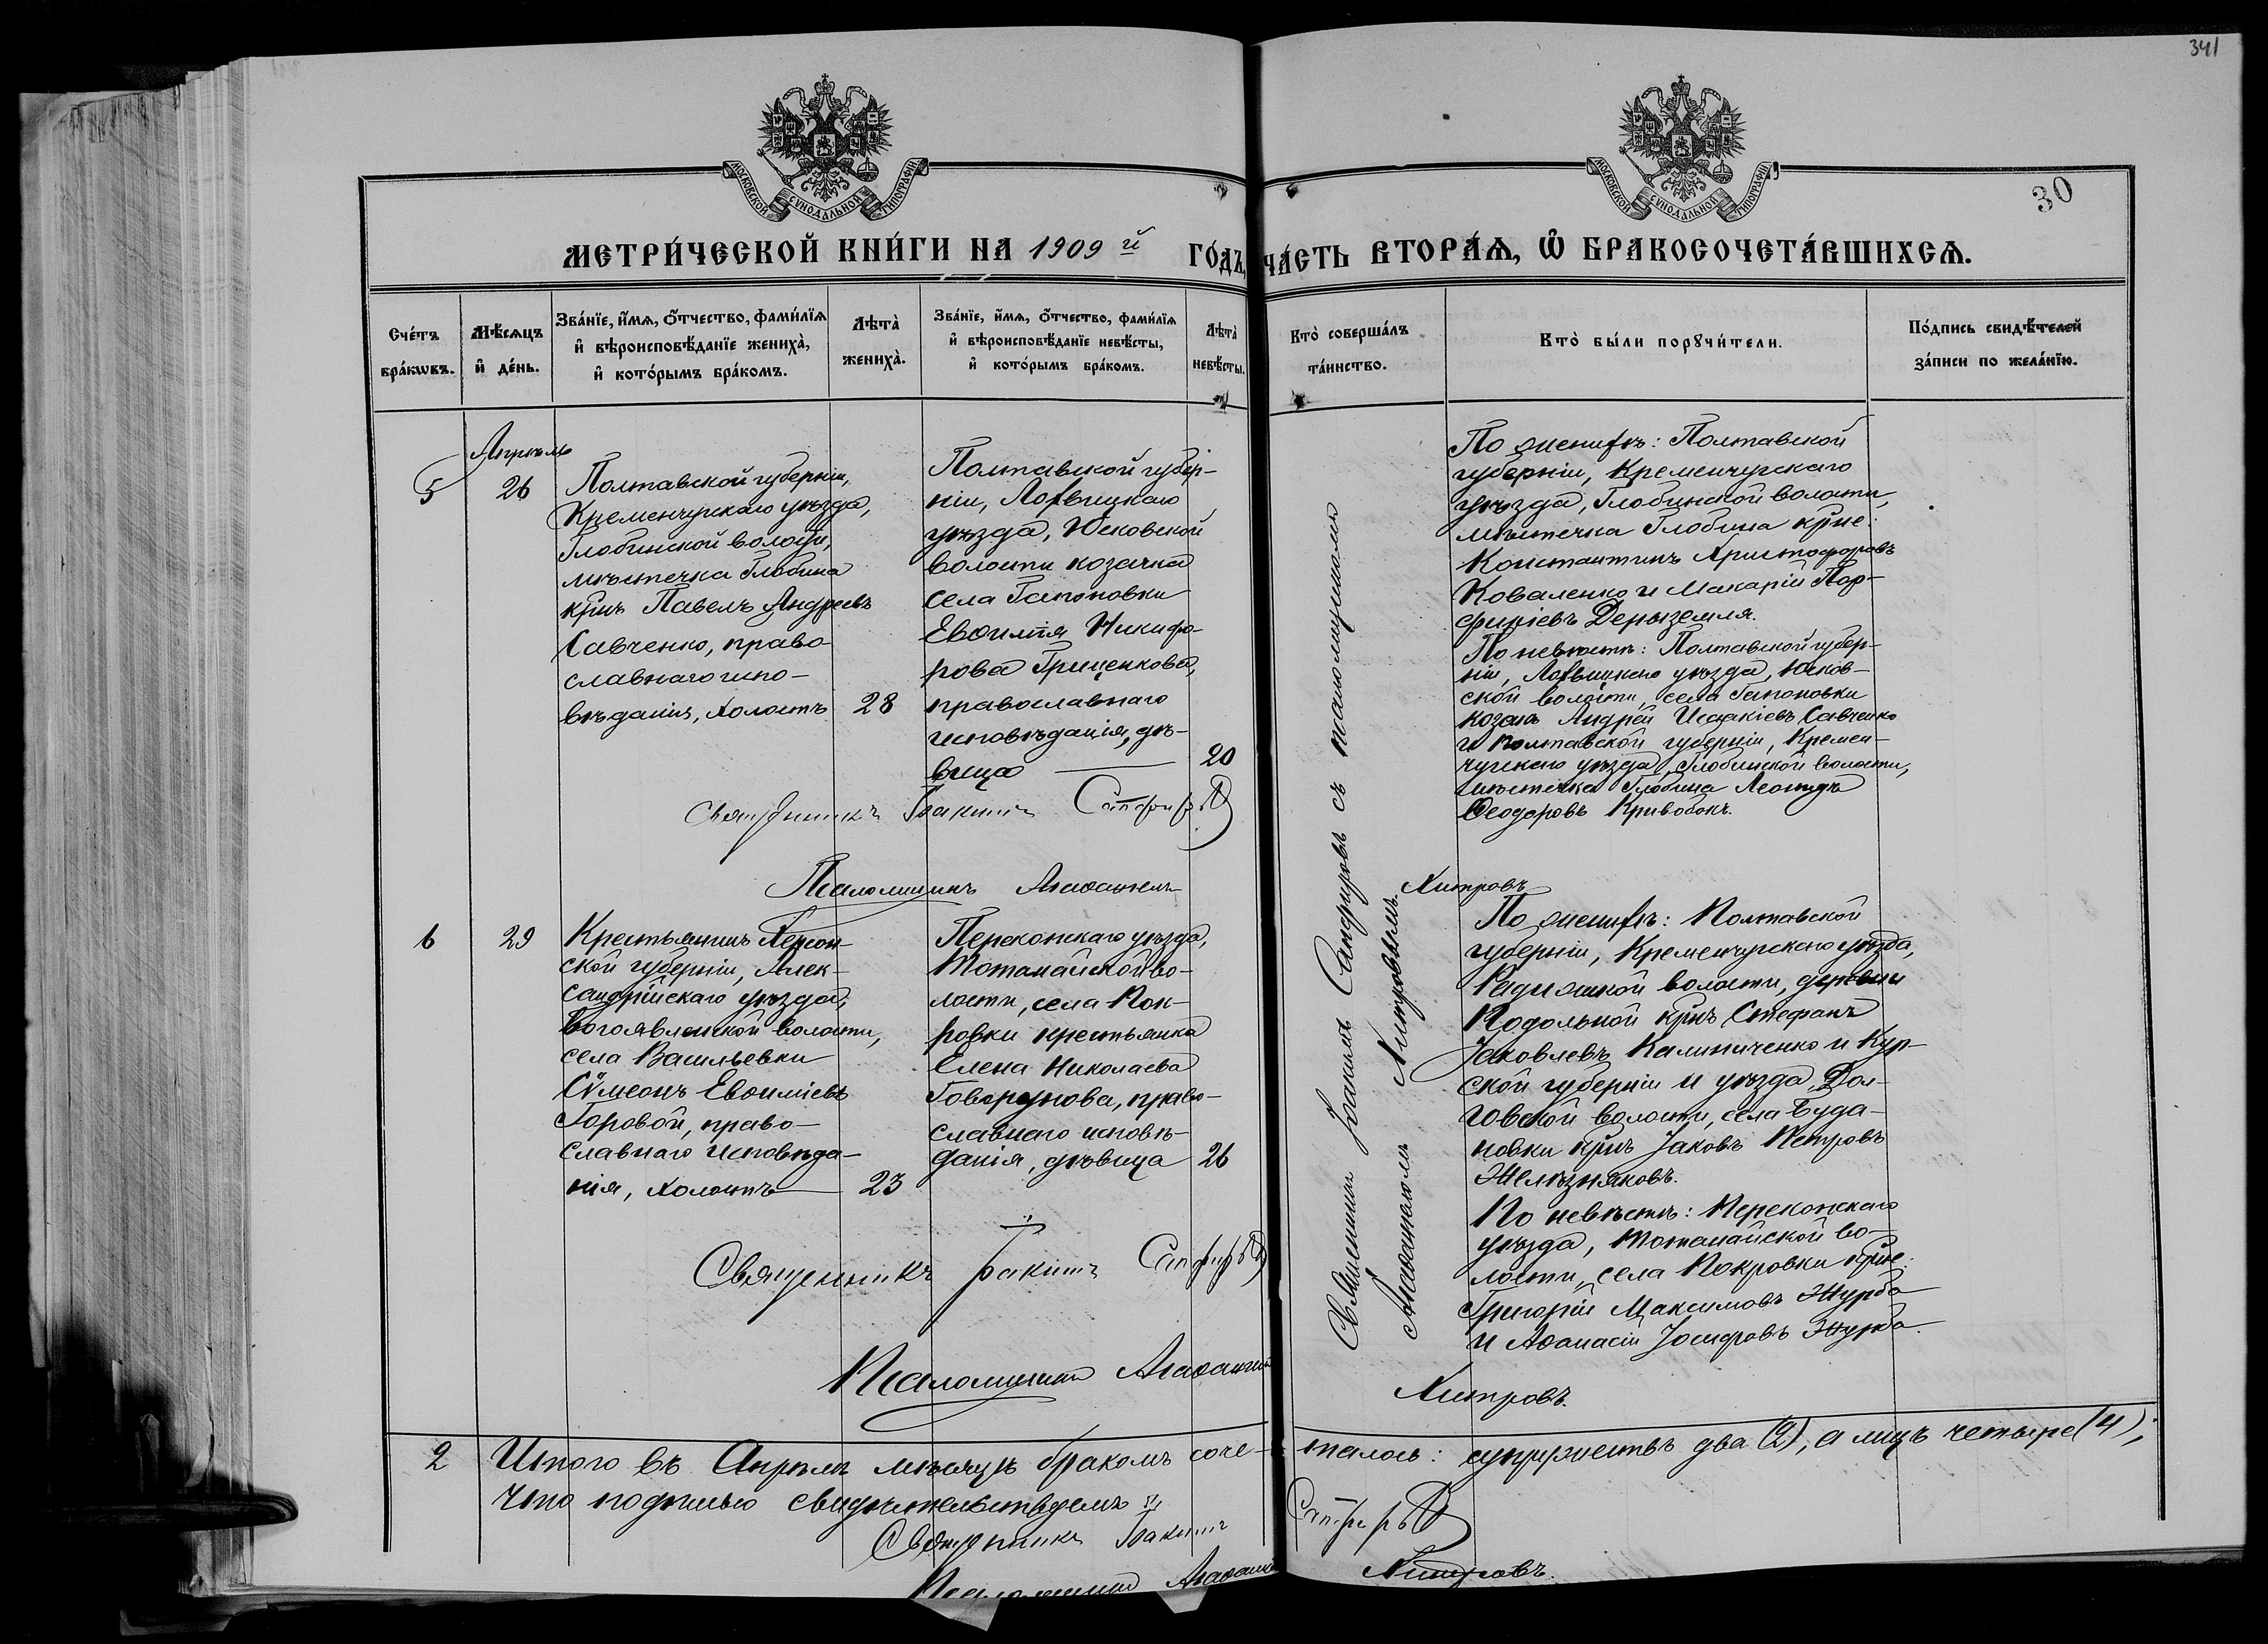 341
30
МОСКОВСКОЙ СУНОДАЛЬНОЙ ТИПОГРАФІИ
МОСКОВСКОЙ СУНОДАЛЬНОЙ ТИПОГРАФІИ
МЕТРИ́ЧЕСКОЙ КНИ́ГИ НА 1909й ГО́ДЪ, ЧА́СТЬ ВТОРА́Ѧ, Ѽ БРАКОСОЧЕТА́ВШИХСѦ.
Сче́тъ
бра́кѡвъ.
Мѣ́сѧцъ
и҆ де́нь.
Зва́нїе, и҆́мѧ, ѻ҆́тчество, фами́лїѧ
и҆ вѣроисповѣ́данїе женихà,
и҆ кото́рымъ бра́комъ.
Лѣтà
женихà.
Зва́нїе, и҆́мѧ, ѻ҆́тчество, фами́лїѧ
и҆ вѣроисповѣ́данїе невѣ́сты,
и҆ кото́рымъ бра́комъ.
Лѣтà
невѣ́сты.
Кто̀ соверша́лъ
та́инство.
Кто̀ бы́ли порꙋчи́тели.
По́дпись свидѣ́телей
за́писи по жела́нїю.
Апрѣль
5
26
Полтавской губерніи,
Кременчугскаго уѣзда,
Глобинской волости,
мѣстечка Глобина
крнъ Павелъ Андреевъ
Савченко, право-
славнаго испо-
вѣданія, холостъ
28
Полтавской губер-
ніи, Лохвицкаго
уѣзда, Юсковской
волости козачка
села Гапоновки
Евѳимія Никифо-
рова Гриценкова,
православнаго
исповѣданія, дѣ-
вица
20
Священникъ Іоакимъ Сапфировъ
Псаломщикъ Агаѳангелъ
Хитровъ
По женихѣ: Полтавской
губерніи, Кременчугскаго
уѣзда, Глобинской волости,
мѣстечка Глобина крне:
Константинъ Христофоровъ
Коваленко и Макарій Пор-
фиріевъ Дерыземля.
По невѣстѣ: Полтавской губер-
ніи, Лохвицкаго уѣзда, Юсков-
ской волости, села Гапоновки
козакъ Андрей Исаакіевъ Савченко
и Полтавской губерніи, Кремен-
чугскаго уѣзда, Глобинской волости,
мѣстечка Глобина Леонидъ
Ѳеодоровъ Кривобокъ.
Священникъ Іоакимъ Сапфировъ съ псаломщикомъ
Агаѳангеломъ Хитровымъ.
6
29
Крестьянинъ Херсон-
ской губерніи, Алек-
сандрійскаго уѣзда,
Богоявленской волости,
села Васильевки
Сѵмеонъ Евѳиміевъ
Горовой, право-
славнаго исповѣда-
нія, холостъ
23
Перекопскаго уѣзда,
Тотанайской во-
лости, села Пок-
ровки крестьянка
Елена Николаева
Говорунова, право-
славнаго исповѣ-
данія, дѣвица
26
По женихѣ: Полтавской
губерніи, Кременчугскаго уѣзда,
волости, деревни
Подольной крнъ Стефанъ
Яковлевъ Калиниченко и Кур-
ской губерніи и уѣзда, Дол-
говской волости, села Буда-
новки крнъ Іаковъ Петровъ
Желѣзняковъ.
По невѣстѣ: Перекопскаго
уѣзда, Тотанайской во-
лости, села Покровки крне:
Григорій Максимовъ Журба
и Аѳанасій Іосифовъ Журба.
Священникъ Іоакимъ Сапфировъ
Псаломщикъ Агаѳангелъ
Хитровъ.
2
Итого въ Апрѣлѣ мѣсяцѣ бракомъ соче-талось: супружествъ два (2), а лицъ четыре (4),
что подписью свидѣтельствуемъ:
Священникъ Іоакимъ Сапфировъ
Псаломщикъ Агаѳангелъ Хитровъ.